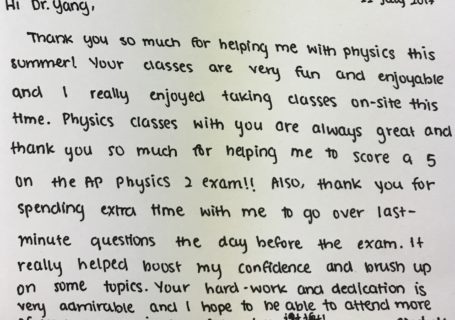 Hi Dr. Yang,
22 July 2017
Thank you so much for helping me with physics this
summer! Your classes are very fun and enjoyable
and I really enjoyed taking classes on-site this
time. Physics classes with you are always great and
thank you so much for helping me to score a 5
on the AP Physics 2 exam!! Also, thank you for
spending extra time with me to go over last-
minute questions the day before the exam. It
really helped boost my confidence and brush up
on some topics. Your hard-work and dedication is
very admirable and I hope to be able to attend more